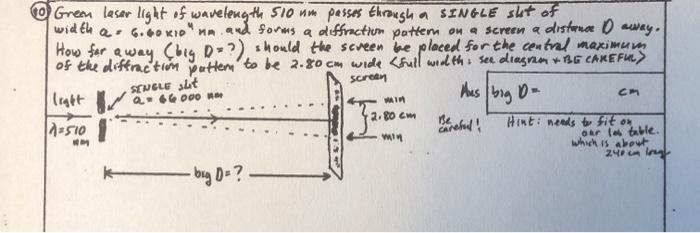 10 Green laser light of wavelength 510 nm passes through a SINGLE slit of
width a = 6.60x10⁴ nm and forms a diffraction pattern on a screen a distance D away.
How far away (big D=?) should the screen be placed for the central maximum
of the diffraction pattern to be 2.80 cm wide <full width: see diagram + BE CAREFUL>
screen
SINGLE slit
Ans big D= cm
light
a = 66000 nm
min
λ=510
nm
2.80 cm
Be
careful!
Hint: needs to fit on
our lab table.
min
which is about
240 cm long
big D=?